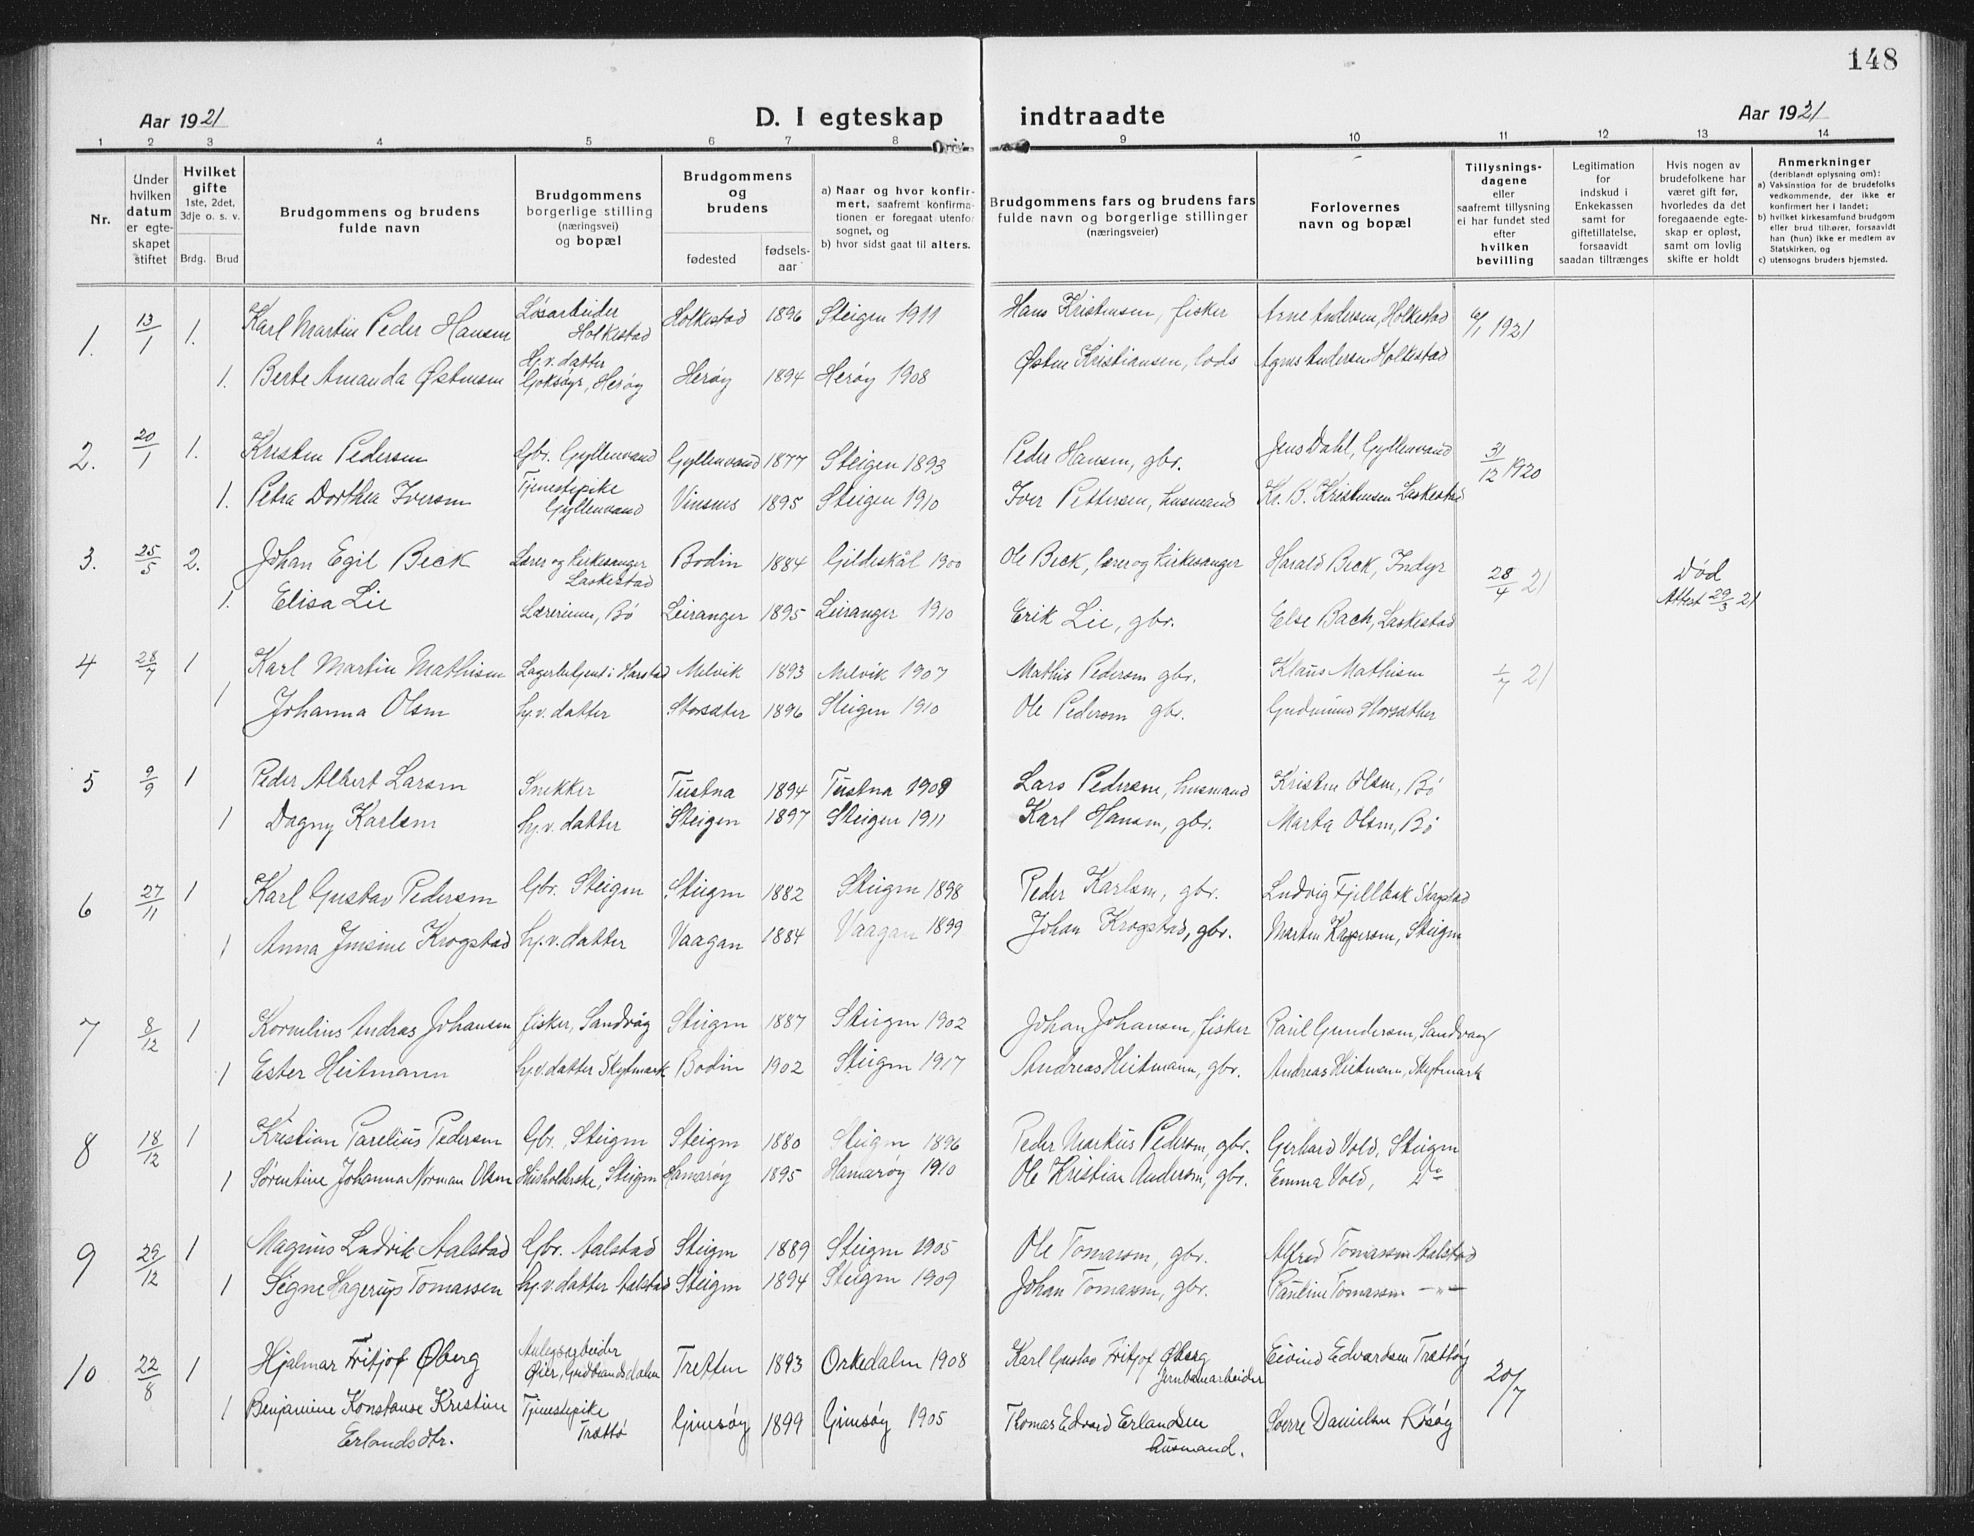 148
Aar 1921
D. I egteskap indtraadte
Aar 1921
1 2 3 4 5 6 7 8 9 10 11 12 13 14
Nr.
Under hvilken datum er egteskapet stiftet
Hvilket gifte 1ste, 2det, 3dje o. s. v.
Brdg. Brud
Brudgommens og brudens fulde navn
Brudgommens borgerlige stilling (næringsvei) og bopæl
Brudgommens og brudens
fødested
fødselsaar
a) Naar og hvor konfirmert, saafremt konfirmationen er foregaat utenfor sognet, og
b) hvor sidst gaat til alters.
Brudgommens fars og brudens fars fulde navn og borgerlige stillinger (næringsveier)
Forlovernes navn og bopæl
Tillysningsdagene eller saafremt tillysning ei har fundet sted efter hvilken bevilling
Legitimation for indskud i Enkekassen samt for giftetillatelse, forsaavidt saadan tiltrænges
Hvis nogen av brudefolkene har været gift før, hvorledes da det foregaaende egteskap er opløst, samt om lovlig skifte er holdt
Anmerkninger (deriblandt oplysning om):
a) Vaksination for de brudefolks vedkommende, der ikke er konfirmert her i landet;
b) hvilket kirkesamfund brudgom eller brud tilhører, forsaavidt han (hun) ikke er medlem av Statskirken, og
c) utensogns bruders hjemsted.
1. 13/1 1. Karl Martin Peder Hansen Løsarbeider Holkestad Holkestad 1896 Steigen 1911 Hans Kristensen, fisker Arne Andersen, Holkestad 6/1 1921
1. Berte Amanda Østensen Hj.v. datter Goksøyr, Herøy Herøy 1894 Herøy 1908 Østen Kristiansen, lods Agnes Andersen Holkestad
2. 20/1 1. Kristen Pedersen Gbr. Gyllenvand Gyllenvand 1877 Steigen 1893 Peder Hansen, gbr. Jens Dahl, Gyllenvand 31/12 1920
1. Petra Dorthea Iversen Tjenestepike Gyllenvand Vinsnes 1895 Steigen 1910 Iver Pettersen, husmand Kr. B. Kristensen Laskestad
3. 25/5 2. Johan Egil Beck Lærer og kirkesanger Laskestad Bodin 1884 Gildeskål 1900 Ole Beck, lærer og kirkesanger Harald Beck, Indyr 28/4 21 Død Attest 29/3 21
1. Elisa Lie Lærerinne, Bø Leiranger 1895 Leiranger 1910 Erik Lie, gbr. Else Bach, Laskestad
4 28/7 1 Karl Martin Mathisen Lagerbetjent i Harstad Melvik 1893 Melvik 1907 Mathis Pedersen gbr. Klaus Mathisen 1/7 21
1 Johanna Olsen hj.v. datter Storsæter 1896 Steigen 1910 Ole Pedersen gbr. Gudmund Storsæther
5 9/9 1 Peder Albert Larsen Snekker Tustna 1894 Tustna 1909 Lars Pedersen, husmand Kristen Olsen, Bø
1 Dagny Karlsen hj.v. datter Steigen 1897 Steigen 1911 Karl Hansen, gbr. Marta Olsen, Bø
6 27/11 1 Karl Gustav Pedersen Gbr. Steigen Steigen 1882 Steigen 1898 Peder Karlsen, gbr. Ludvig Fjellbak Skagstad
1 Anna Jensine Krogstad hj.v. datter Vaagan 1884 Vaagan 1899 Johan Krogstad, gbr. Martin Kaspersen, Steigen
7 8/12 1 Kornelius Andreas Johansen fisker, Sandvåg Steigen 1887 Steigen 1902 Johan Johansen, fisker Paul Gundersen, Sandvaag
1 Ester Heitmann hj.v. datter Skytmark Bodin 1902 Steigen 1917 Andreas Heitmann, gbr. Andreas Heitmann, Skytmark
8 18/12 1 Kristian Parelius Pedersen Gbr. Steigen Steigen 1880 Steigen 1896 Peder Markus Pedersen, gbr. Gerhard Vold, Steigen
1 Sørentine Johanna Norman Olsen Husholderske, Steigen Hamarøy 1895 Hamarøy 1910 Ole Kristian Andersen, gbr. Emma Vold, Do
9 29/12 1 Magnus Ludvik Aalstad Gbr. Aalstad Steigen 1889 Steigen 1905 Ole Tomassen, gbr. Alfred Tomassen Aalstad
1 Signe Hagerup Tomassen hj.v. datter Aalstad Steigen 1894 Steigen 1909 Johan Tomassen, gbr. Pauline Tomassen -"-
10 22/8 1 Hjalmar Fritjof Øberg Anlegsarbeider Øier, Gudbrandsdalen Tretten 1893 Orkedalen 1908 Karl Gustav Fritjof Øberg Jernbanarbeider Eivind Edvardsen Trættøy 20/7
1 Benjamine Konstanse Kristine Erlandsdtr. Tjenestepike Trættø Gimsøy 1899 Gimsøy 1905 Thomas Edvard Erlandsen husmand. Sverre Danielsen Røsøy